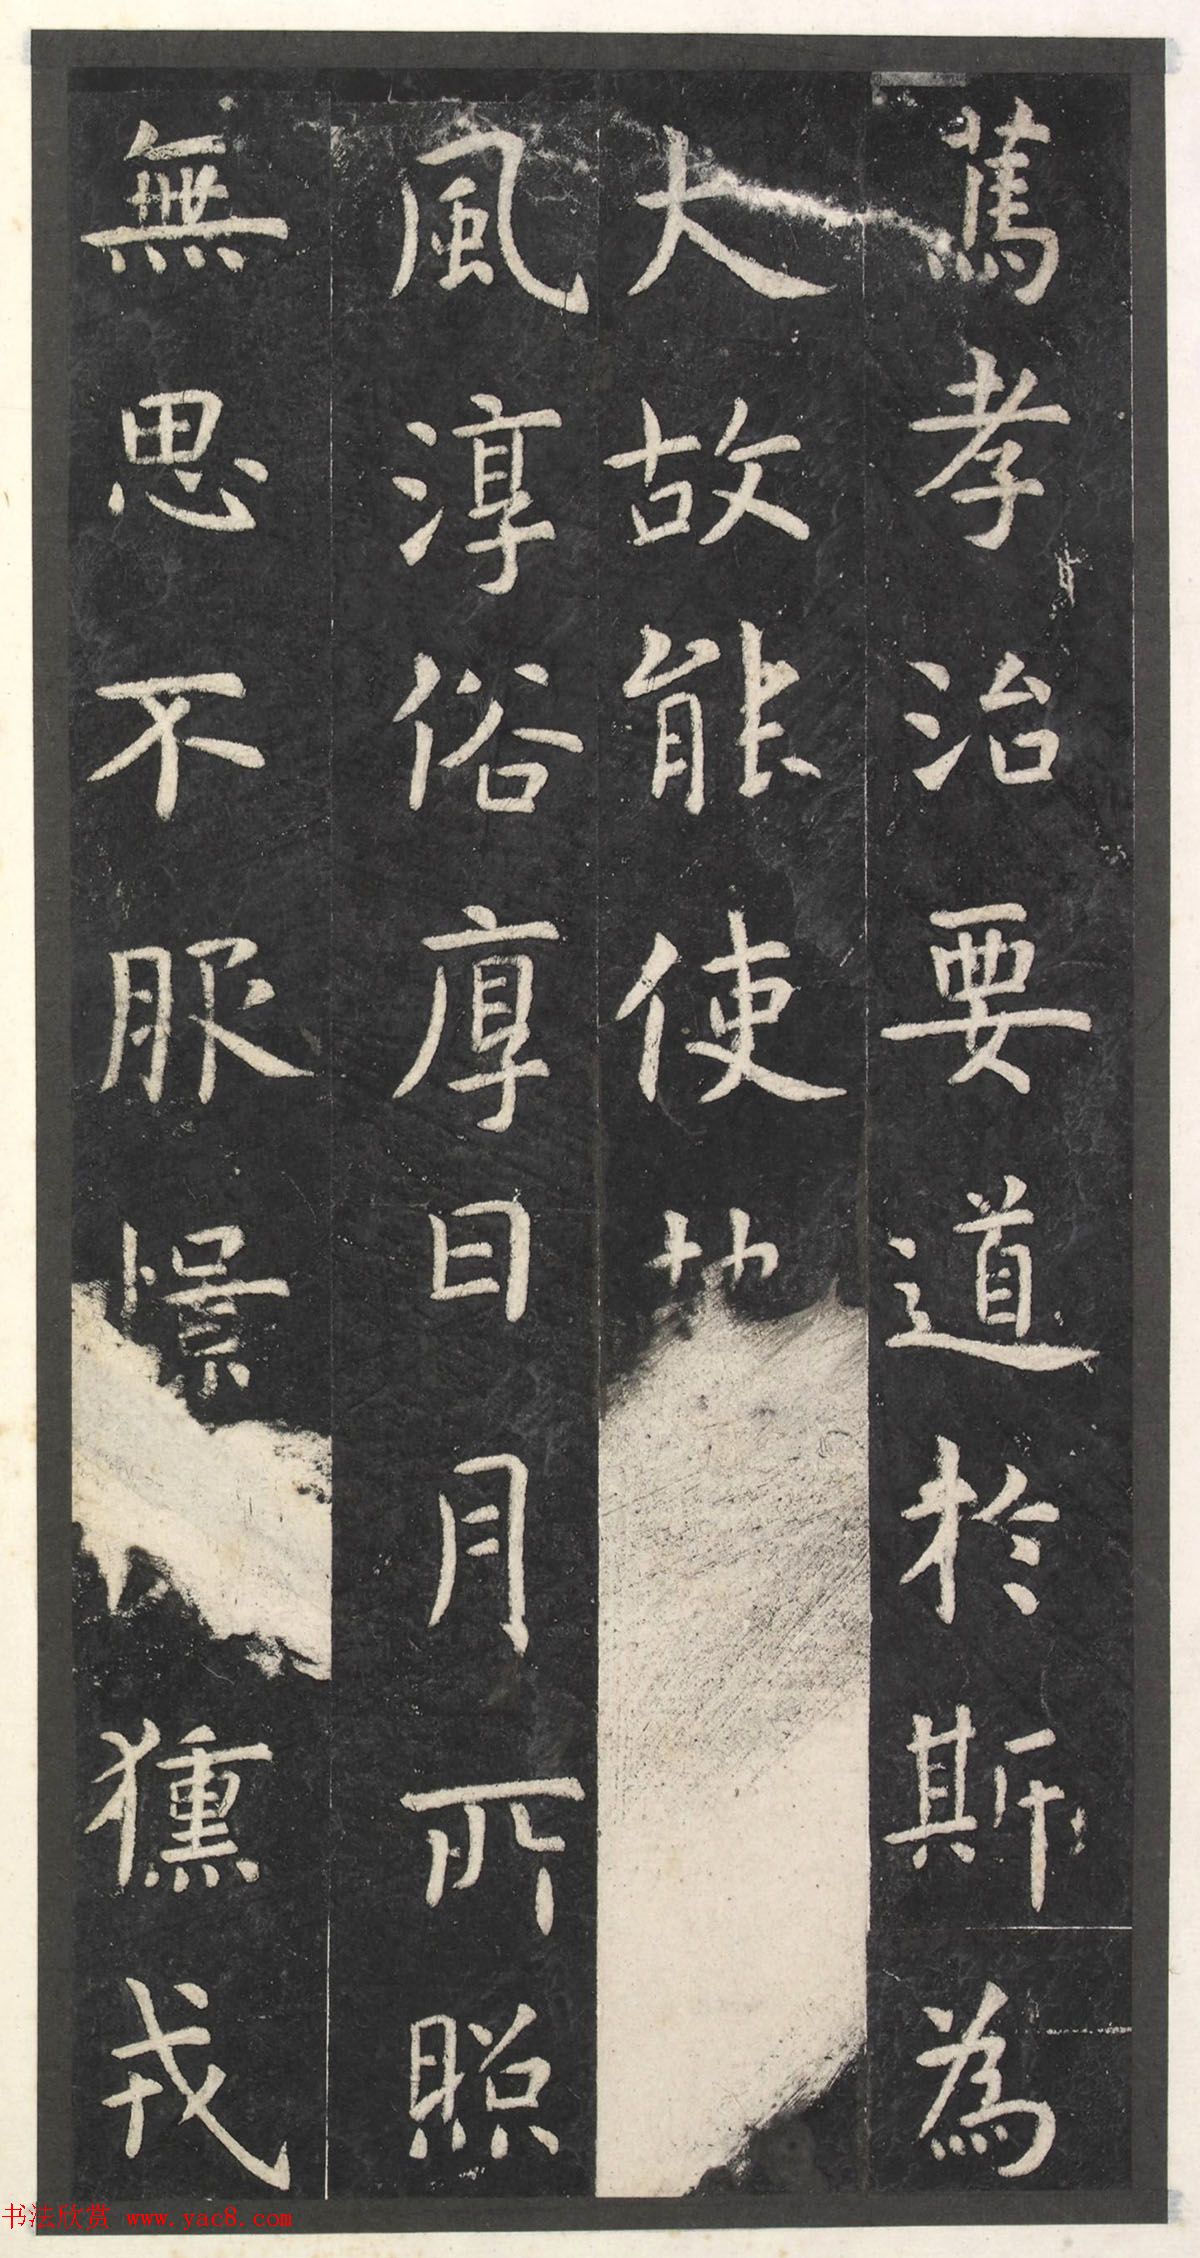 篤孝治要道於斯為
大故能使地
風淳俗厚日月所照
無思不服憬獯戎
书法欣赏 www.yac8.com